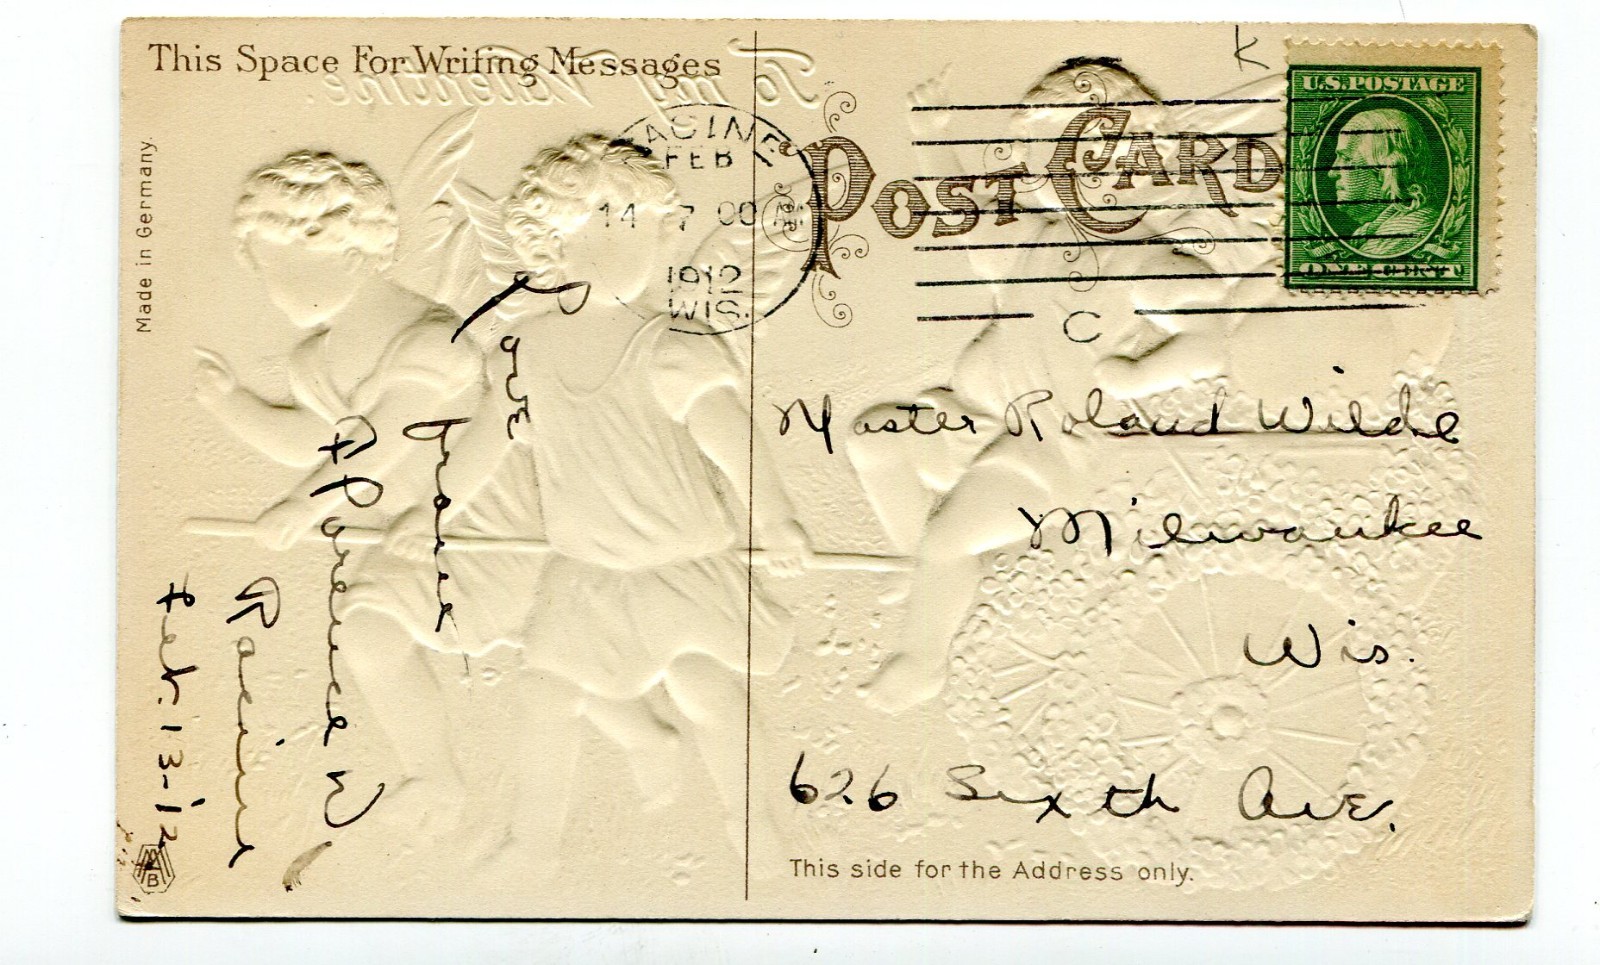 This Space For Writing Messages
To my Valentine.
Made in Germany.
RACINE
FEB
14 7 00 AM
1912
WIS.
POST CARD
K
U.S. POSTAGE
ONE CENT
C
Love
from
Florence W
Racine
Feb. 13-12
Master Roland Wilde
Milwaukee
Wis.
626 Sixth Ave.
This side for the Address only.
B